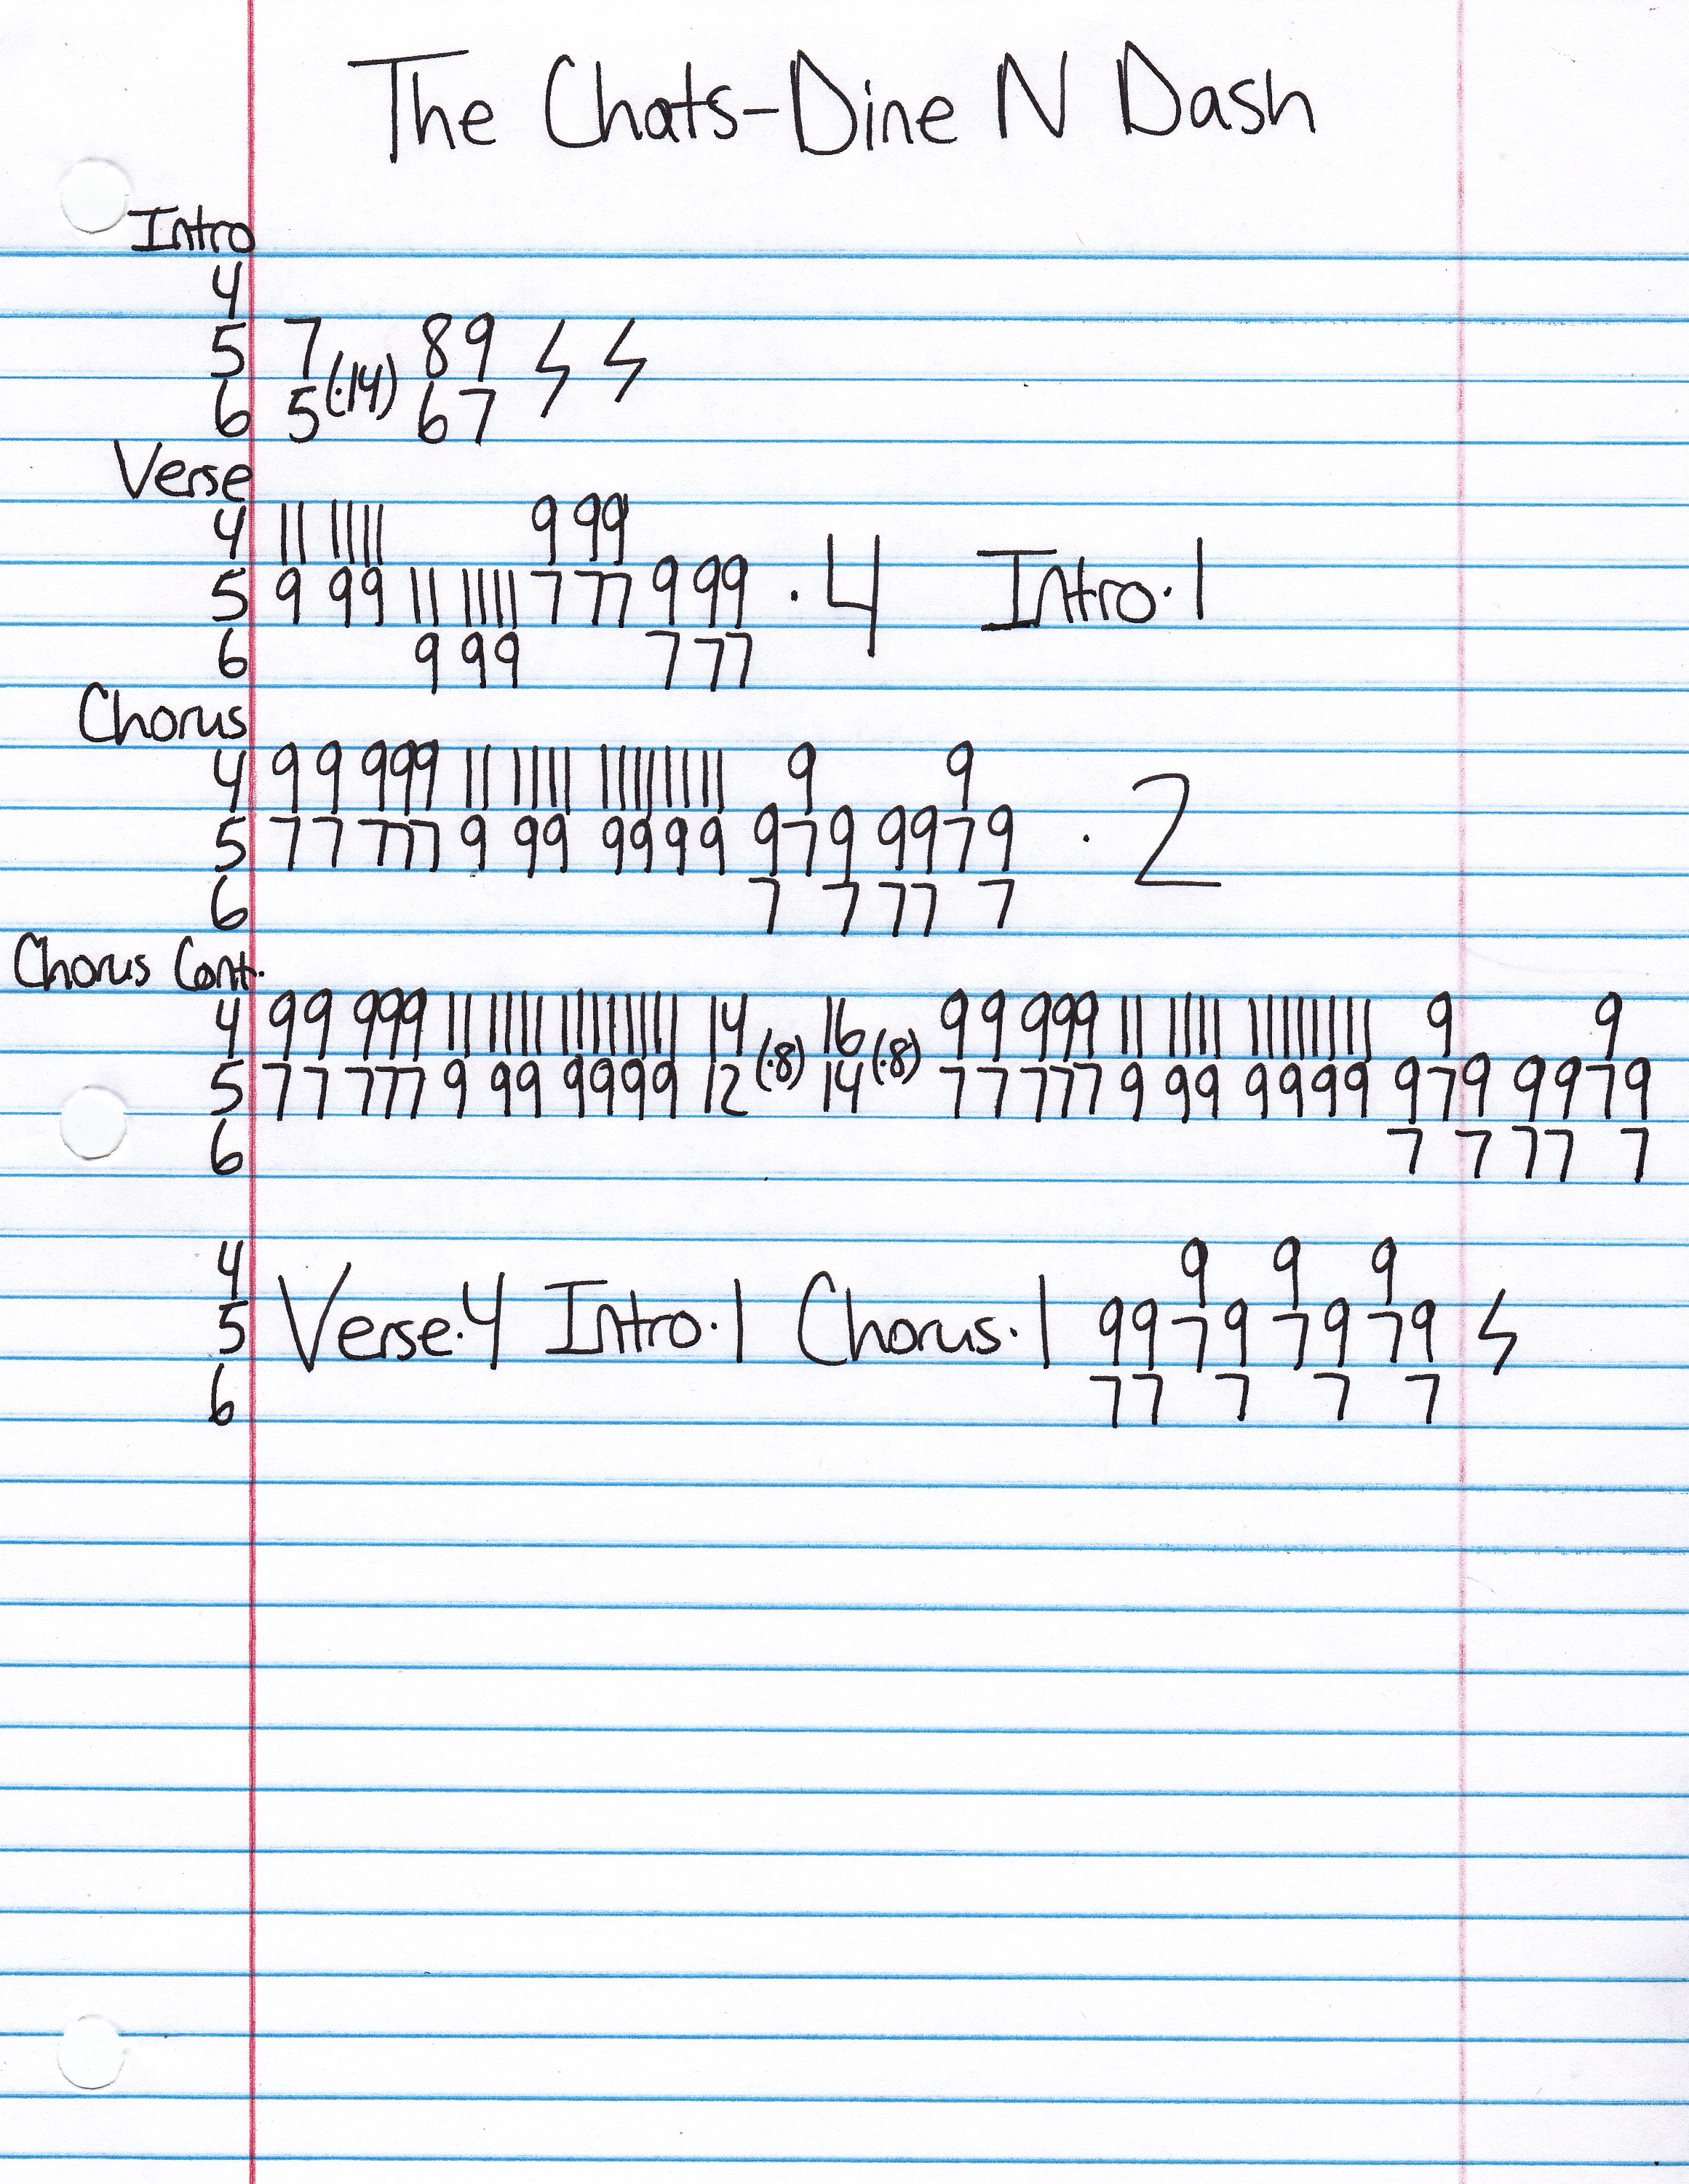 The Chats-Dine N Dash
Intro
4
5 7 (·14) 8 9 ϟ ϟ
6 5 6 7
Verse
4 11 11 11 9 9 9
5 9 9 9 11 11 11 7 7 7 9 9 9 · 4 Intro·1
6 9 9 9 7 7 7
Chorus
4 9 9 9 9 9 11 11 11 11 11 11 11 9 9
5 7 7 7 7 7 9 9 9 9 9 9 9 9 7 9 9 9 7 9 · 2
6 7 7 7 7 7
Chorus Cont.
4 9 9 9 9 9 11 11 11 11 11 11 11 14 (·8) 16 (·8) 9 9 9 9 9 11 11 11 11 11 11 11 9 9
5 7 7 7 7 7 9 9 9 9 9 9 9 12 14 7 7 7 7 7 9 9 9 9 9 9 9 9 7 9 9 9 7 9
6 7 7 7 7 7
4 9 9 9
5 Verse·4 Intro·1 Chorus·1 9 9 7 9 7 9 7 9 ϟ
6 7 7 7 7 7